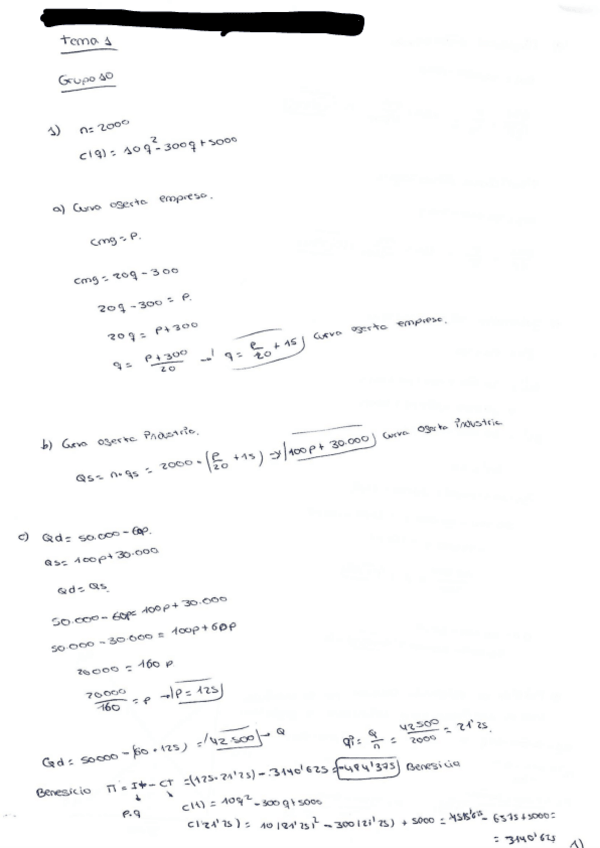 Tema 1
Grupo 10
1) n = 2000
c(q) = 10q² - 300q + 5000
a) Curva oferta empresa.
cmg = P.
cmg = 20q - 300
20q - 300 = P.
20q = P + 300
q = P + 300 / 20 → q = P/20 + 15 Curva oferta empresa.
b) Curva oferta industria.
Qs = n · qs = 2000 · (P/20 + 15) → 100P + 30.000 Curva oferta industria
c) Qd = 50.000 - 60p.
Qs = 100p + 30.000
Qd = Qs
50.000 - 60p = 100p + 30.000
50.000 - 30.000 = 100p + 60p
20000 = 160 p
20000/160 = P → P = 125
Qd = 50000 - (60 · 125) = 42 500 → Q qi = Q/n = 42500/2000 = 21'25.
Beneficio π = It - CT = (125 · 21'25) - 3140'625 = -484'375 Beneficio
P.q c(q) = 10q² - 300q + 5000
c(21'25) = 10(21'25)² - 300(21'25) + 5000 = 4515'625 - 6375 + 5000 =
= 3140'625